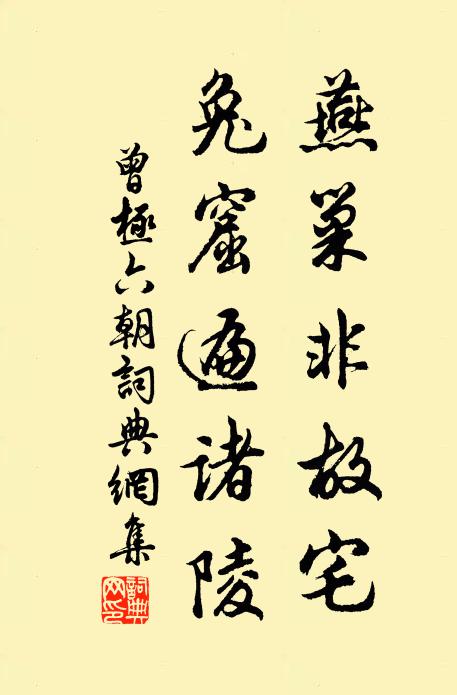 燕巢非故宅
兔窟遍诸陵
曾極六朝詞典網集
詞典網印